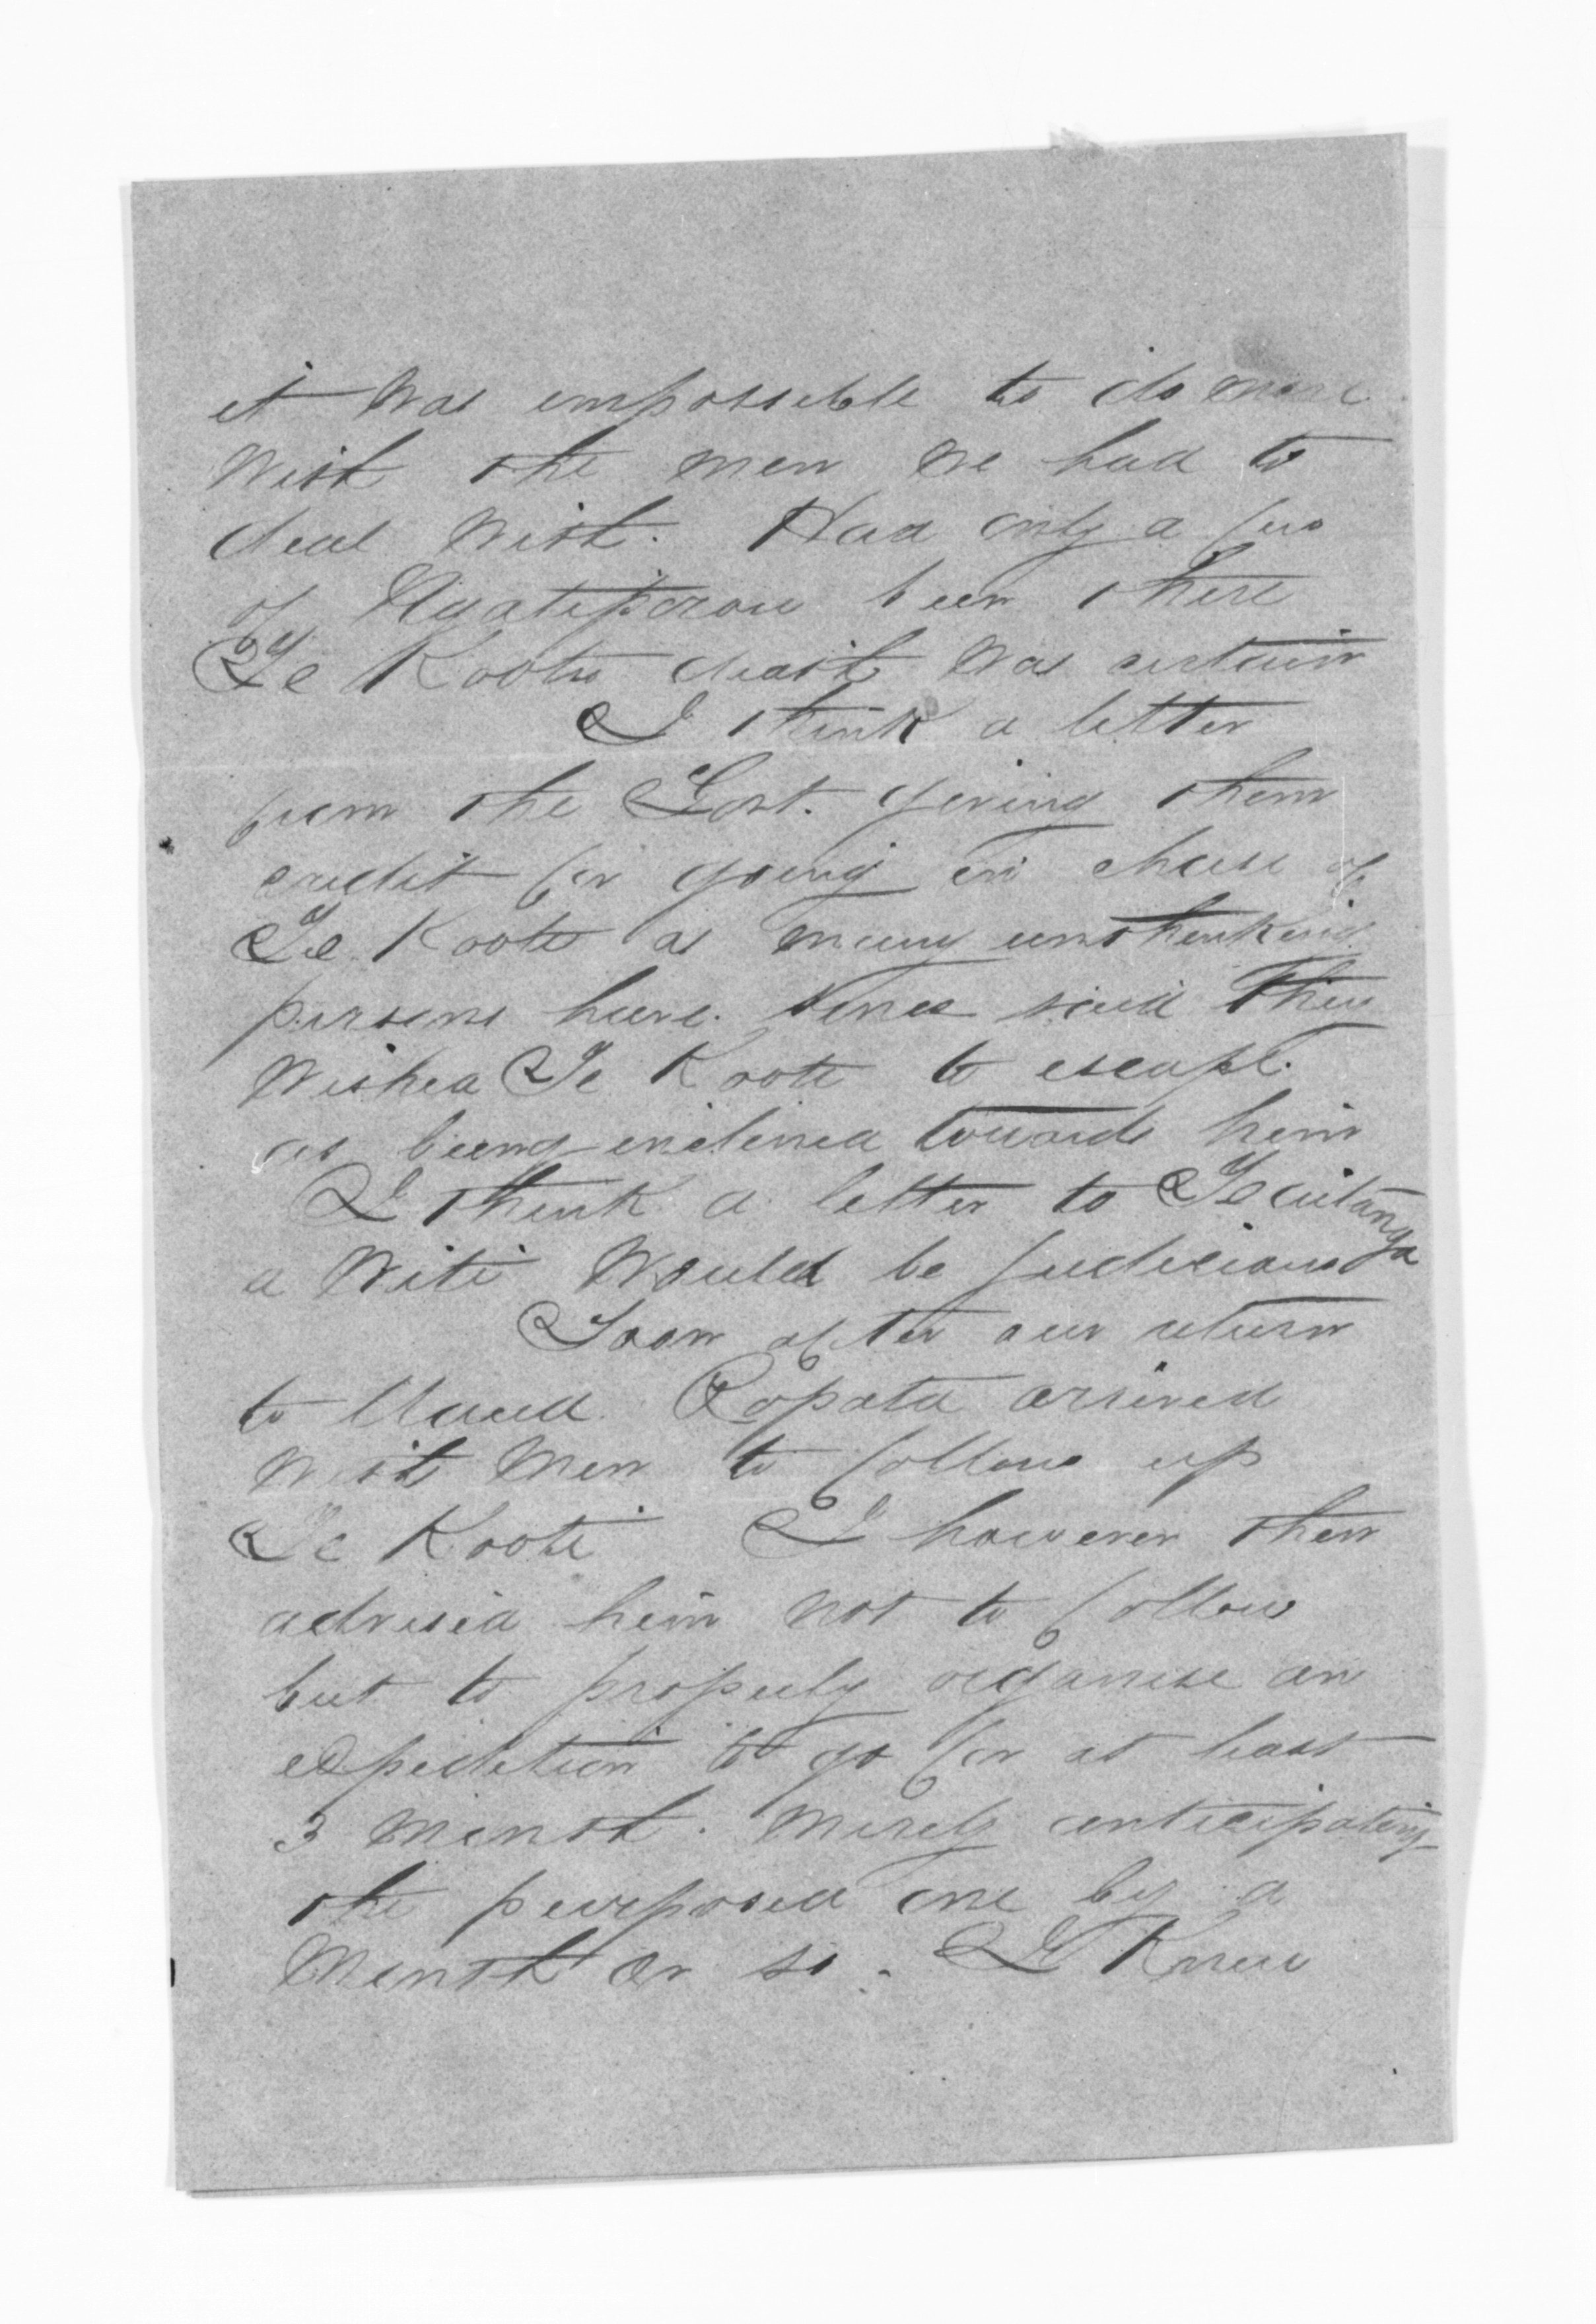 it was impossible to do more
with the men we had to
deal with. Had only a few
of Ngatiporou been there
Te Kootis death was certain
I think a letter
from the Govt. giving them
credit for going in chase of
Te Kooti as many unthinking
persons have since said they
wished Te Kooti to escape.
as being inclined towards him
I think a letter to
a Witi would be judicious
Soon after our return
to Ropata arrived
with men to follow up
Te Kooti I however then
advised him not to follow
but to properly organise an
expedition to go for at least
3 month. merely anticipating
the purposed one by a
month or so. I knew